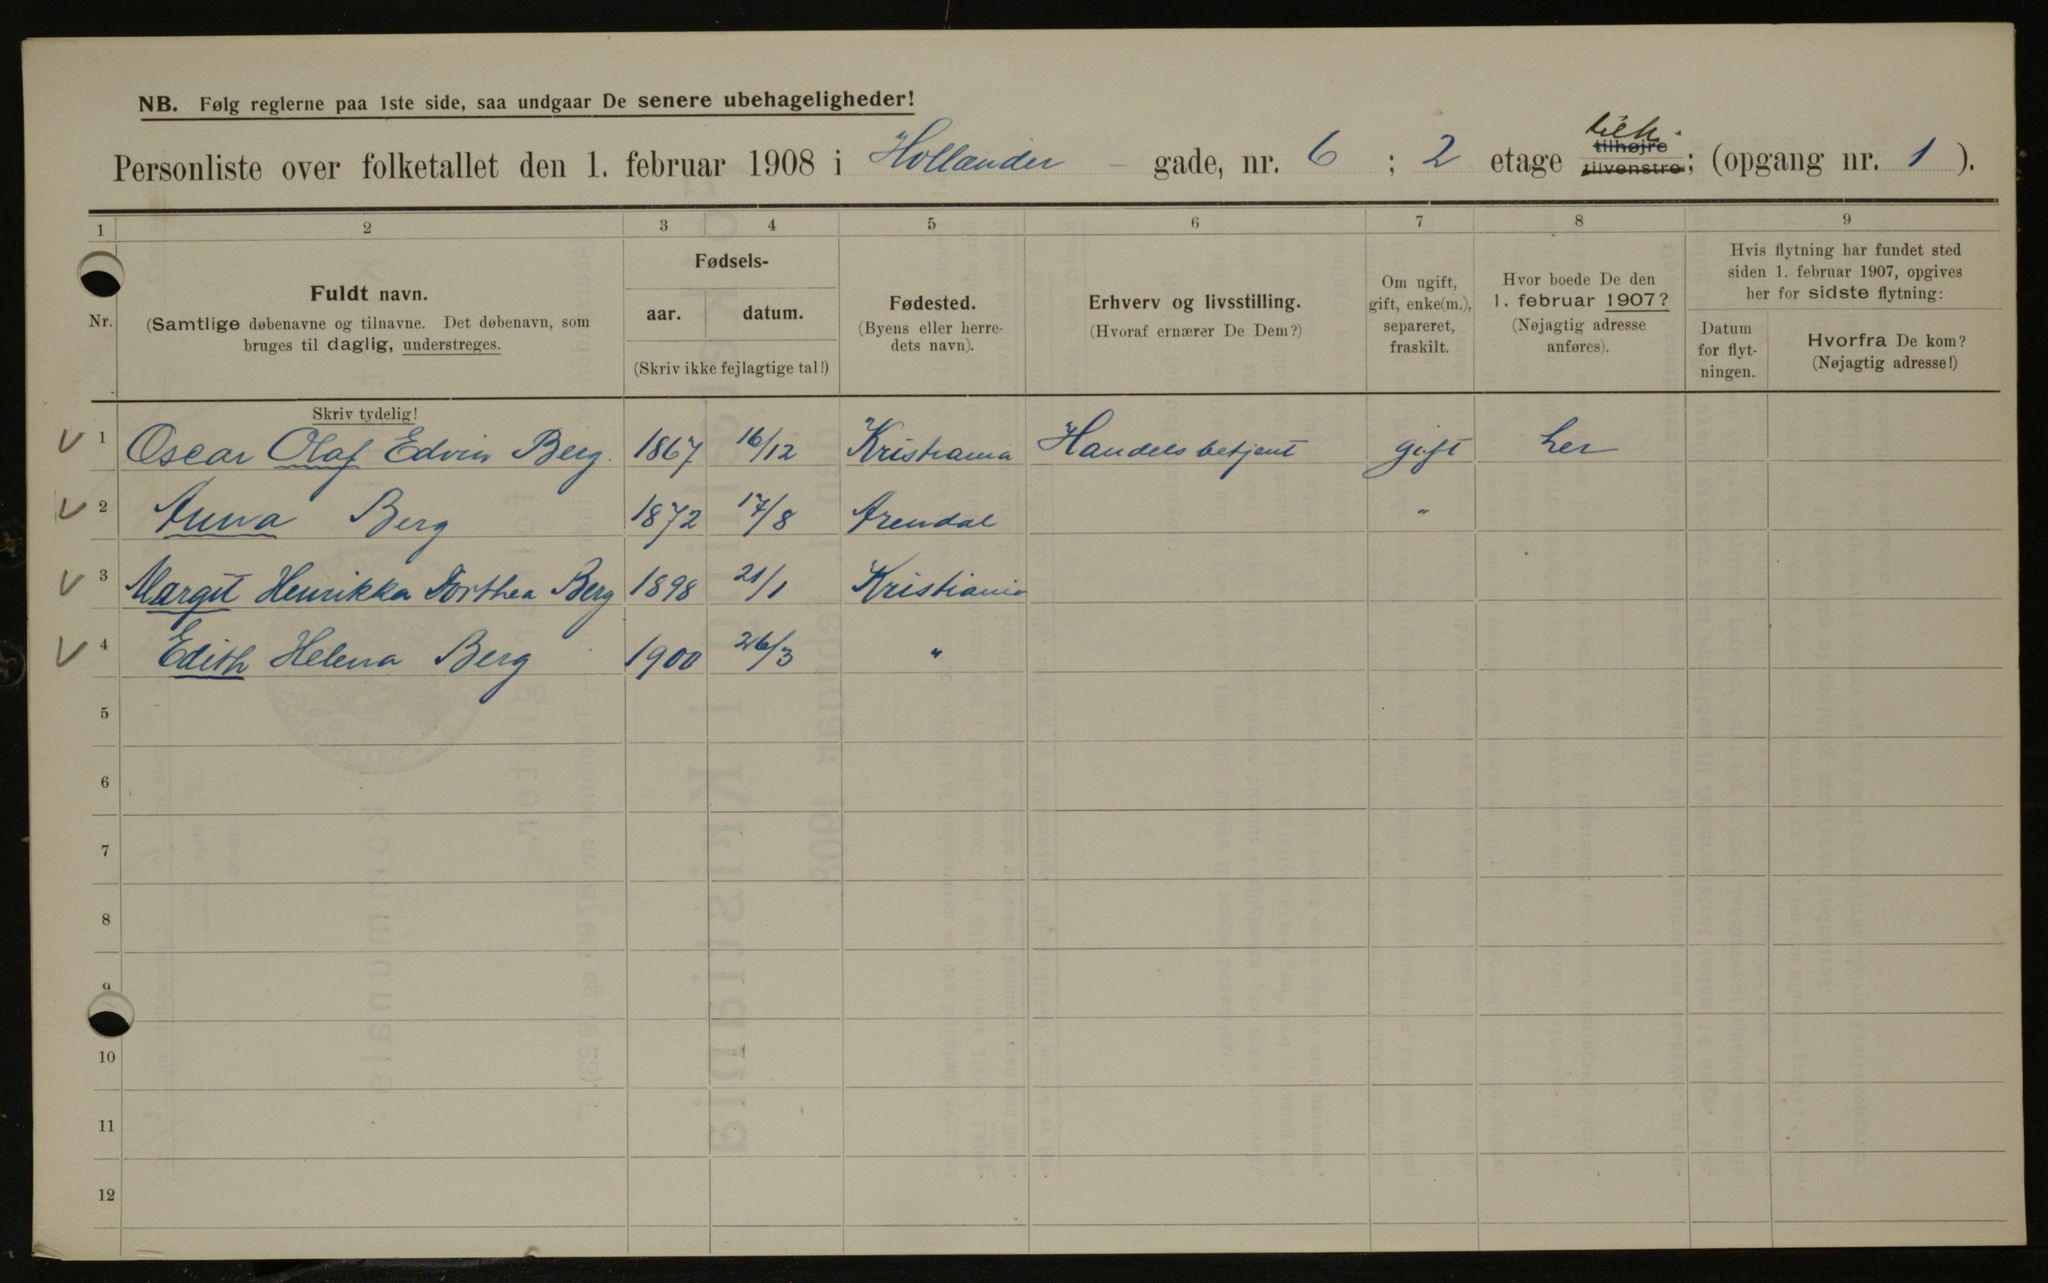 NB. Følg reglerne paa 1ste side, saa undgaar De senere ubehageligheder!
Personliste over folketallet den 1. februar 1908 i Hollænder - gade, nr. 6 ; 2 etage tilhøjre tilvenstre; (opgang nr. 1 ).
1 2 3 4 5 6 7 8 9
Nr.
Fuldt navn.
(Samtlige døbenavne og tilnavne. Det døbenavn, som
bruges til daglig, understreges.
Fødsels-
aar. datum.
(Skriv ikke fejlagtige tal!)
Fødested.
(Byens eller herre-
dets navn).
Erhverv og livsstilling.
(Hvoraf ernærer De Dem?)
Om ugift,
gift, enke(m.),
separeret,
fraskilt.
Hvor boede De den
1. februar 1907?
(Nøjagtig adresse
anføres).
Hvis flytning har fundet sted
siden 1. februar 1907, opgives
her for sidste flytning:
Datum
for flyt-
ningen.
Hvorfra De kom?
(Nøjagtig adresse!)
Skriv tydelig!
1 Oscar Olaf Edvin Berg. 1867 16/12 Kristiania Handelsbetjent gift her
2 Anna Berg 1872 17/8 Arendal "
3 Margit Henrikka Dorthea Berg 1898 21/1 Kristiania
4 Edith Helena Berg 1900 26/3 "
5
6
7
8
9
10
11
12